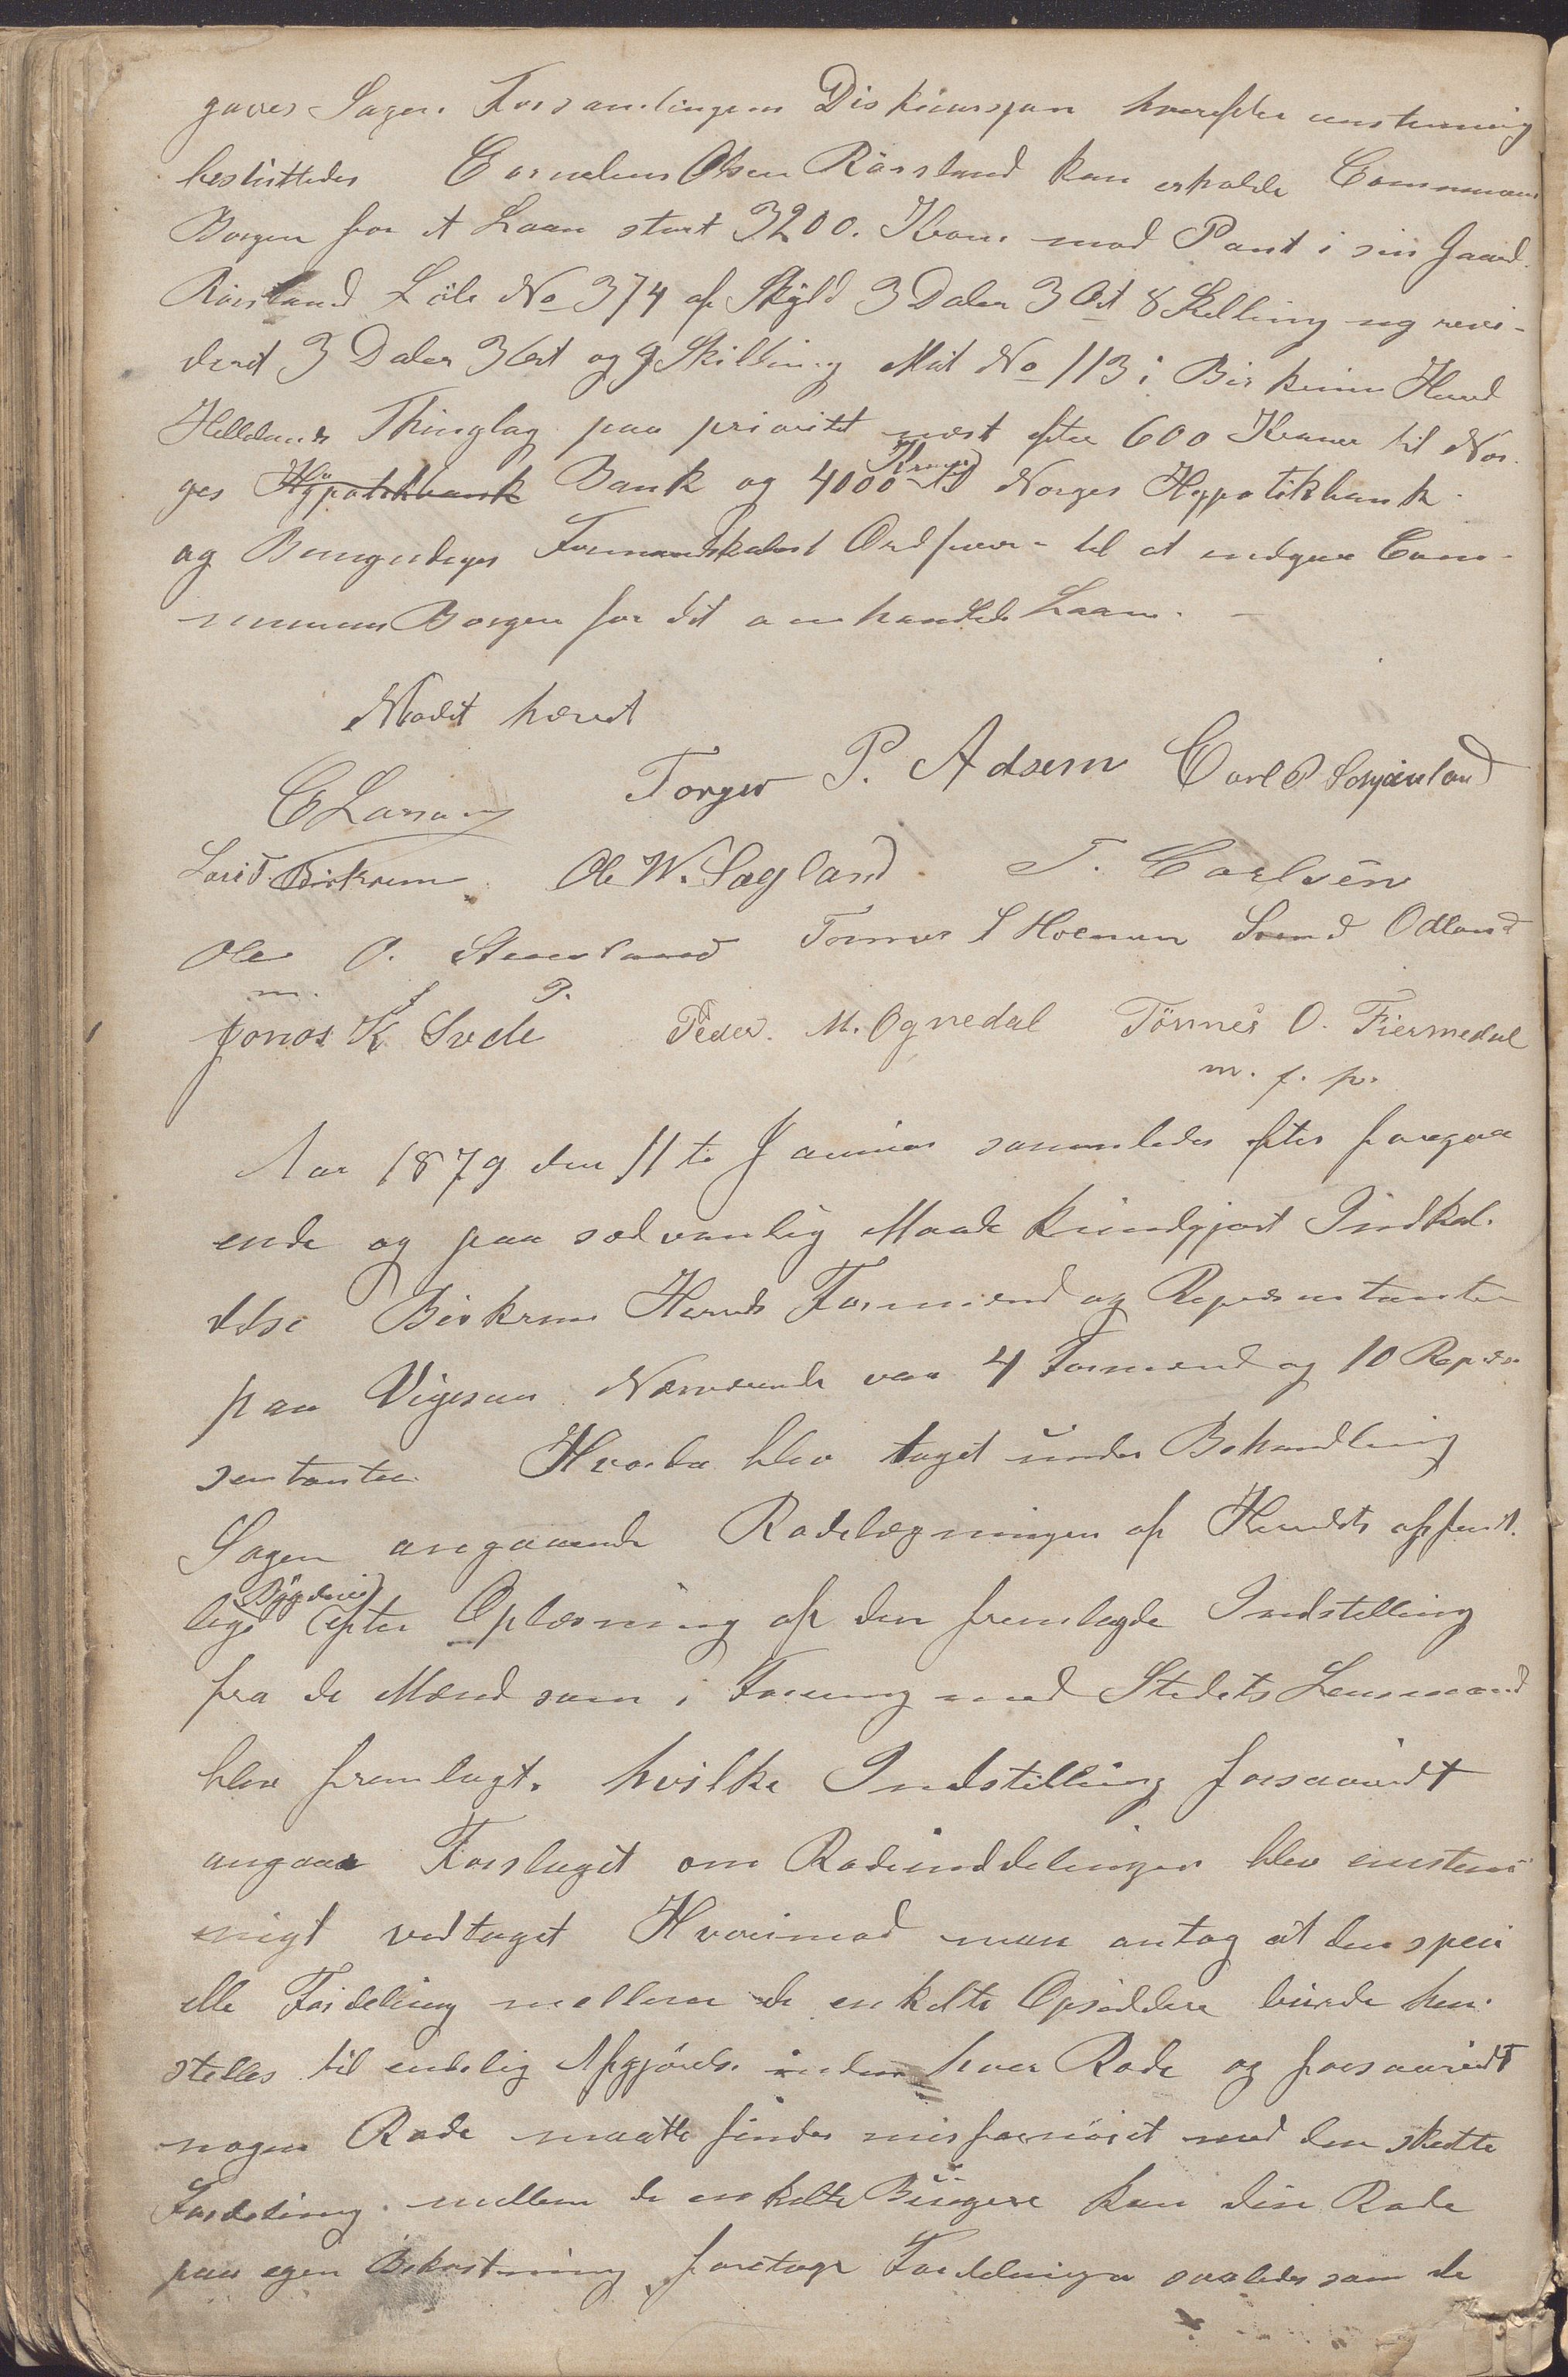 gaves Sagen Forsamlingens Diskusjon hvorefter enstemig
besluttedes Cornelius Olsen Røisland kan erholde Commune
Borgen for et Laan stort 3200. Kroner mod Pant i sin Gaard
Røisland Løbe No 374 af Skyld 3 Daler 3 Ort 8 Skilling ny revi-
deret 3 Daler 3 Ort og 9 Skilling Mat No 113 i Birkrem Hered
Hellelands Thinglag paa prioritet næst efter 600 Kroner til Nor
ges Hypotekbank Bank og 4000 Kroner til Norges Hypotekbank
og Formandskabets Ordfører til at udgive Com-
munens Borgen for det omhandlede Laan. –
Mødet hævet
C Larsen Torger P. Adsem Carl P
Birkrem Ole W. Sagland T. Carlsen
Ole O. Steensland Tonnes S Svend Odland
m. f. P.
Jonas K. Svele Peder. M. Ognedal Tönnes O. Fiermedal
m. f. p.
Aar 1879 den 11te Januar samledes efter foregaa
ende og paa sædvanlig Maade kundgjort Indkal-
delse Birkrem Hereds Formænd og Repræsentanter
paa Vigesaa Nærværende var 4 Formænd og 10 Repræ
sentanter Hvorda blev taget under Behandling
Sagen angaaende Rodelægningen af Heredets offent-
lige Bygdevei efter Oplæsning af den fremlagde Indstilling
fra de Mænd som i Forening med Stedets Lensmand
blev fremlagt. hvilke Indstilling forsaavidt
angaar Forslaget om Rodeinddelingen blev enstem
migt vedtaget Hvorimod man antog at den speci
elle Fordeling mellem de enkelte Opsiddere burde hen-
stilles til endelig Afgjørelse inden hver Rode og forsaavidt
nogen Rode maatte findes misfornøiet med den skette
Fordeling mellem de enkelte Brugere kan den Rode
paa egen Bekostning foretage Fordelingen saaledes som de